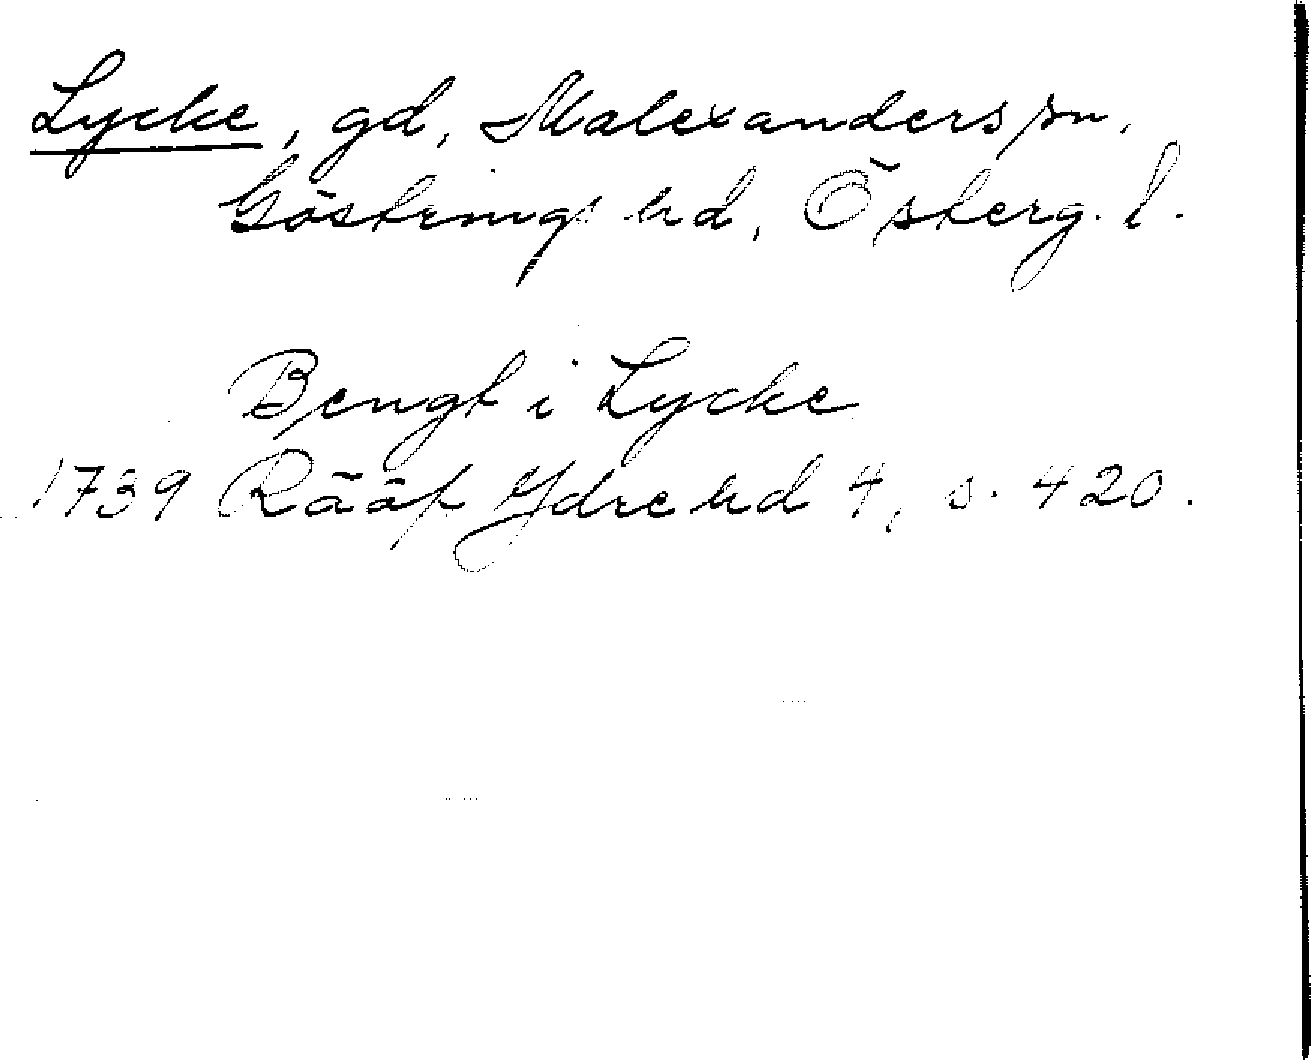 Lycke, gd, Malexanders sn,
Göstrings hd, Österg. l.
Bengt i Lycke
1739 Rääf Ydre hd 4, s. 420.